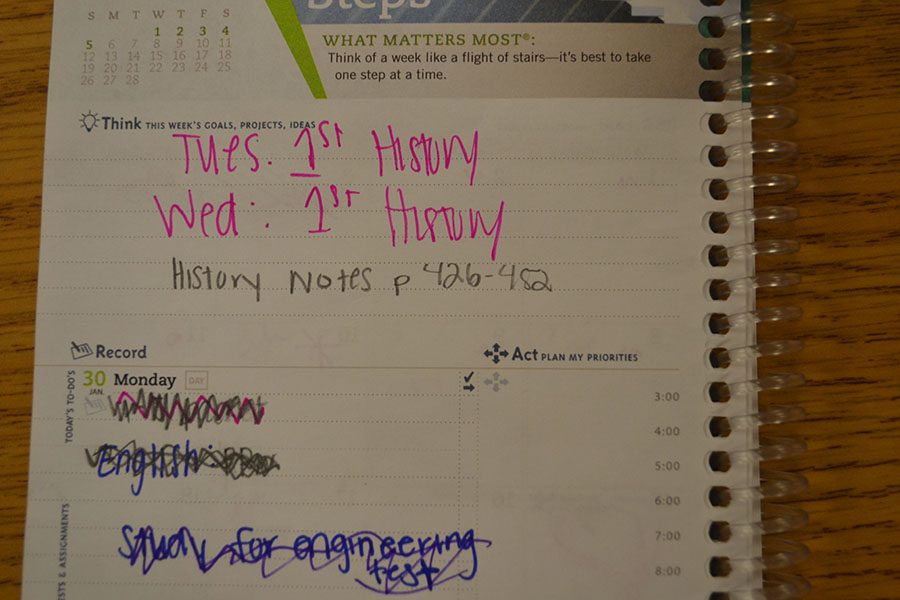 Steps
S M T W T F S
1 2 3 4
5 6 7 8 9 10 11
12 13 14 15 16 17 18
19 20 21 22 23 24 25
26 27 28
WHAT MATTERS MOST®:
Think of a week like a flight of stairs—it's best to take
one step at a time.
Think THIS WEEK'S GOALS, PROJECTS, IDEAS
Tues. 1st History
Wed: 1st History
History Notes p 426-452
Record
Act PLAN MY PRIORITIES
TODAY'S TO-DO'S
30 Monday DAY
JAN.
3:00
4:00
English:
5:00
6:00
Study for engineering
test
7:00
8:00
& ASSIGNMENTS